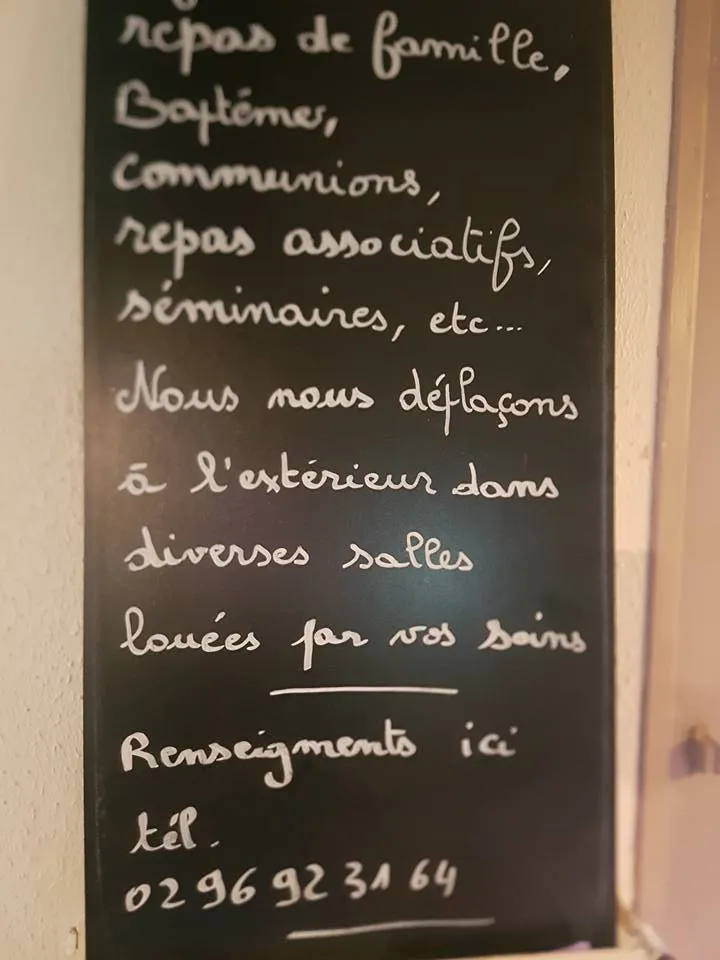 repas de famille,
Baptémes,
communions,
repas associatifs,
séminaires, etc...
Nous nous déplaçons
à l'extérieur dans
diverses salles
louées par vos soins
Renseigments ici
tél.
02 96 92 31 64